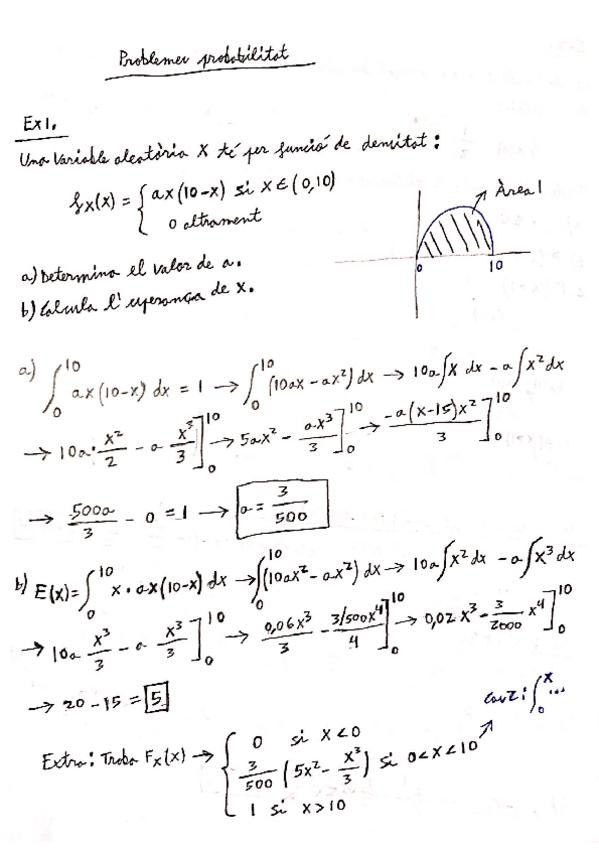 Problemes probabilitat
Ex1.
Una variable aleatòria X té per funció de densitat:
fx(x) = { ax(10-x) si x ∈ (0,10)
0 altrament
Àrea 1
0 10
a) Determina el valor de a.
b) Calcula l'esperança de x.
a) ∫₀¹⁰ ax(10-x) dx = 1 → ∫₀¹⁰ (10ax - ax²) dx → 10a∫x dx - a∫x² dx
→ 10a · x²/2 - a x³/3 ]₀¹⁰ → 5ax² - ax³/3 ]₀¹⁰ → -a(x-15)x²/3 ]₀¹⁰
→ 500a/3 - 0 = 1 → a = 3/500
b) E(x) = ∫₀¹⁰ x · ax(10-x) dx → ∫₀¹⁰ (10ax² - ax²) dx → 10a∫x² dx - a∫x³ dx
→ 10a x³/3 - a x³/3 ]₀¹⁰ → 0,06x³/3 - 3/500x⁴/4 ]₀¹⁰ → 0,02x³ - 3/2000 x⁴ ]₀¹⁰
→ 20 - 15 = 5
∫₀ˣ ...
Extra: Troba Fx(x) → { 0 si x<0
3/500 (5x² - x³/3) si 0<x<10
1 si x>10